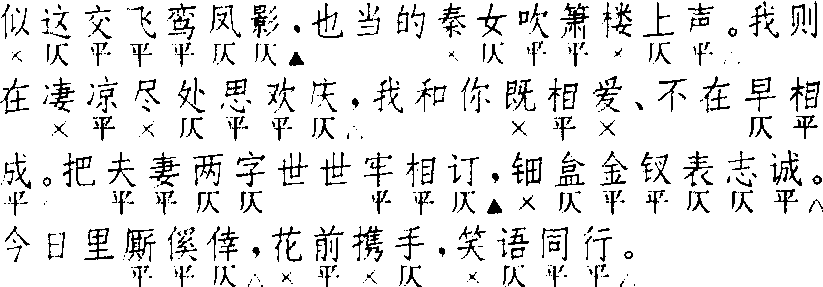 似这交飞鸾凤影，也当的秦女吹箫楼上声。我则
×仄平平平仄仄▲×仄平平×仄平△
在凄凉尽处思欢庆，我和你既相爱、不在早相
×平×仄平平仄△×平×仄平
成。把夫妻两字世世牢相订，钿盒金钗表志诚。
平平平仄仄平平仄▲×仄平平仄仄平△
今日里厮傒倖，花前携手，笑语同行。
平平仄△×平×仄×仄平平△